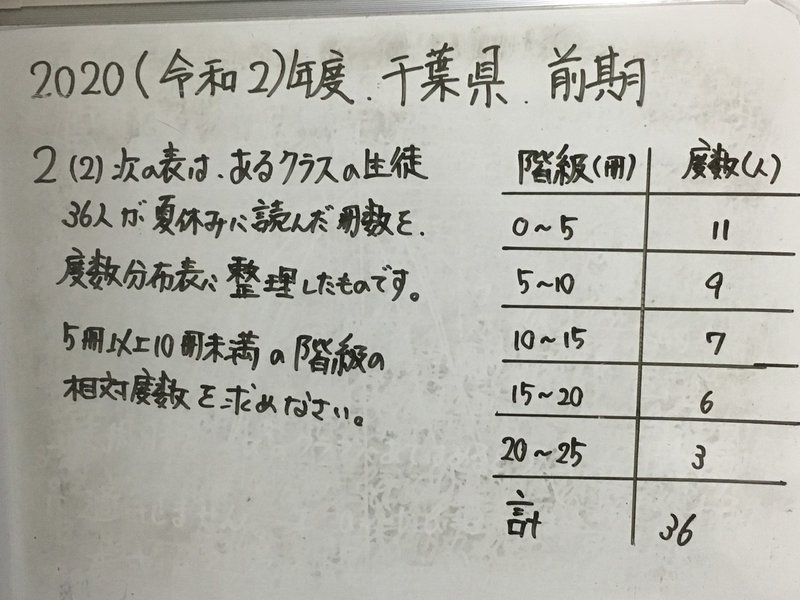 2020(令和2)年度.千葉県.前期
2 (2) 次の表は、あるクラスの生徒
36人が夏休みに読んだ冊数を、
度数分布表に整理したものです。
5冊以上10冊未満の階級の
相対度数を求めなさい。
階級(冊) 度数(人)
0~5 11
5~10 9
10~15 7
15~20 6
20~25 3
計 36